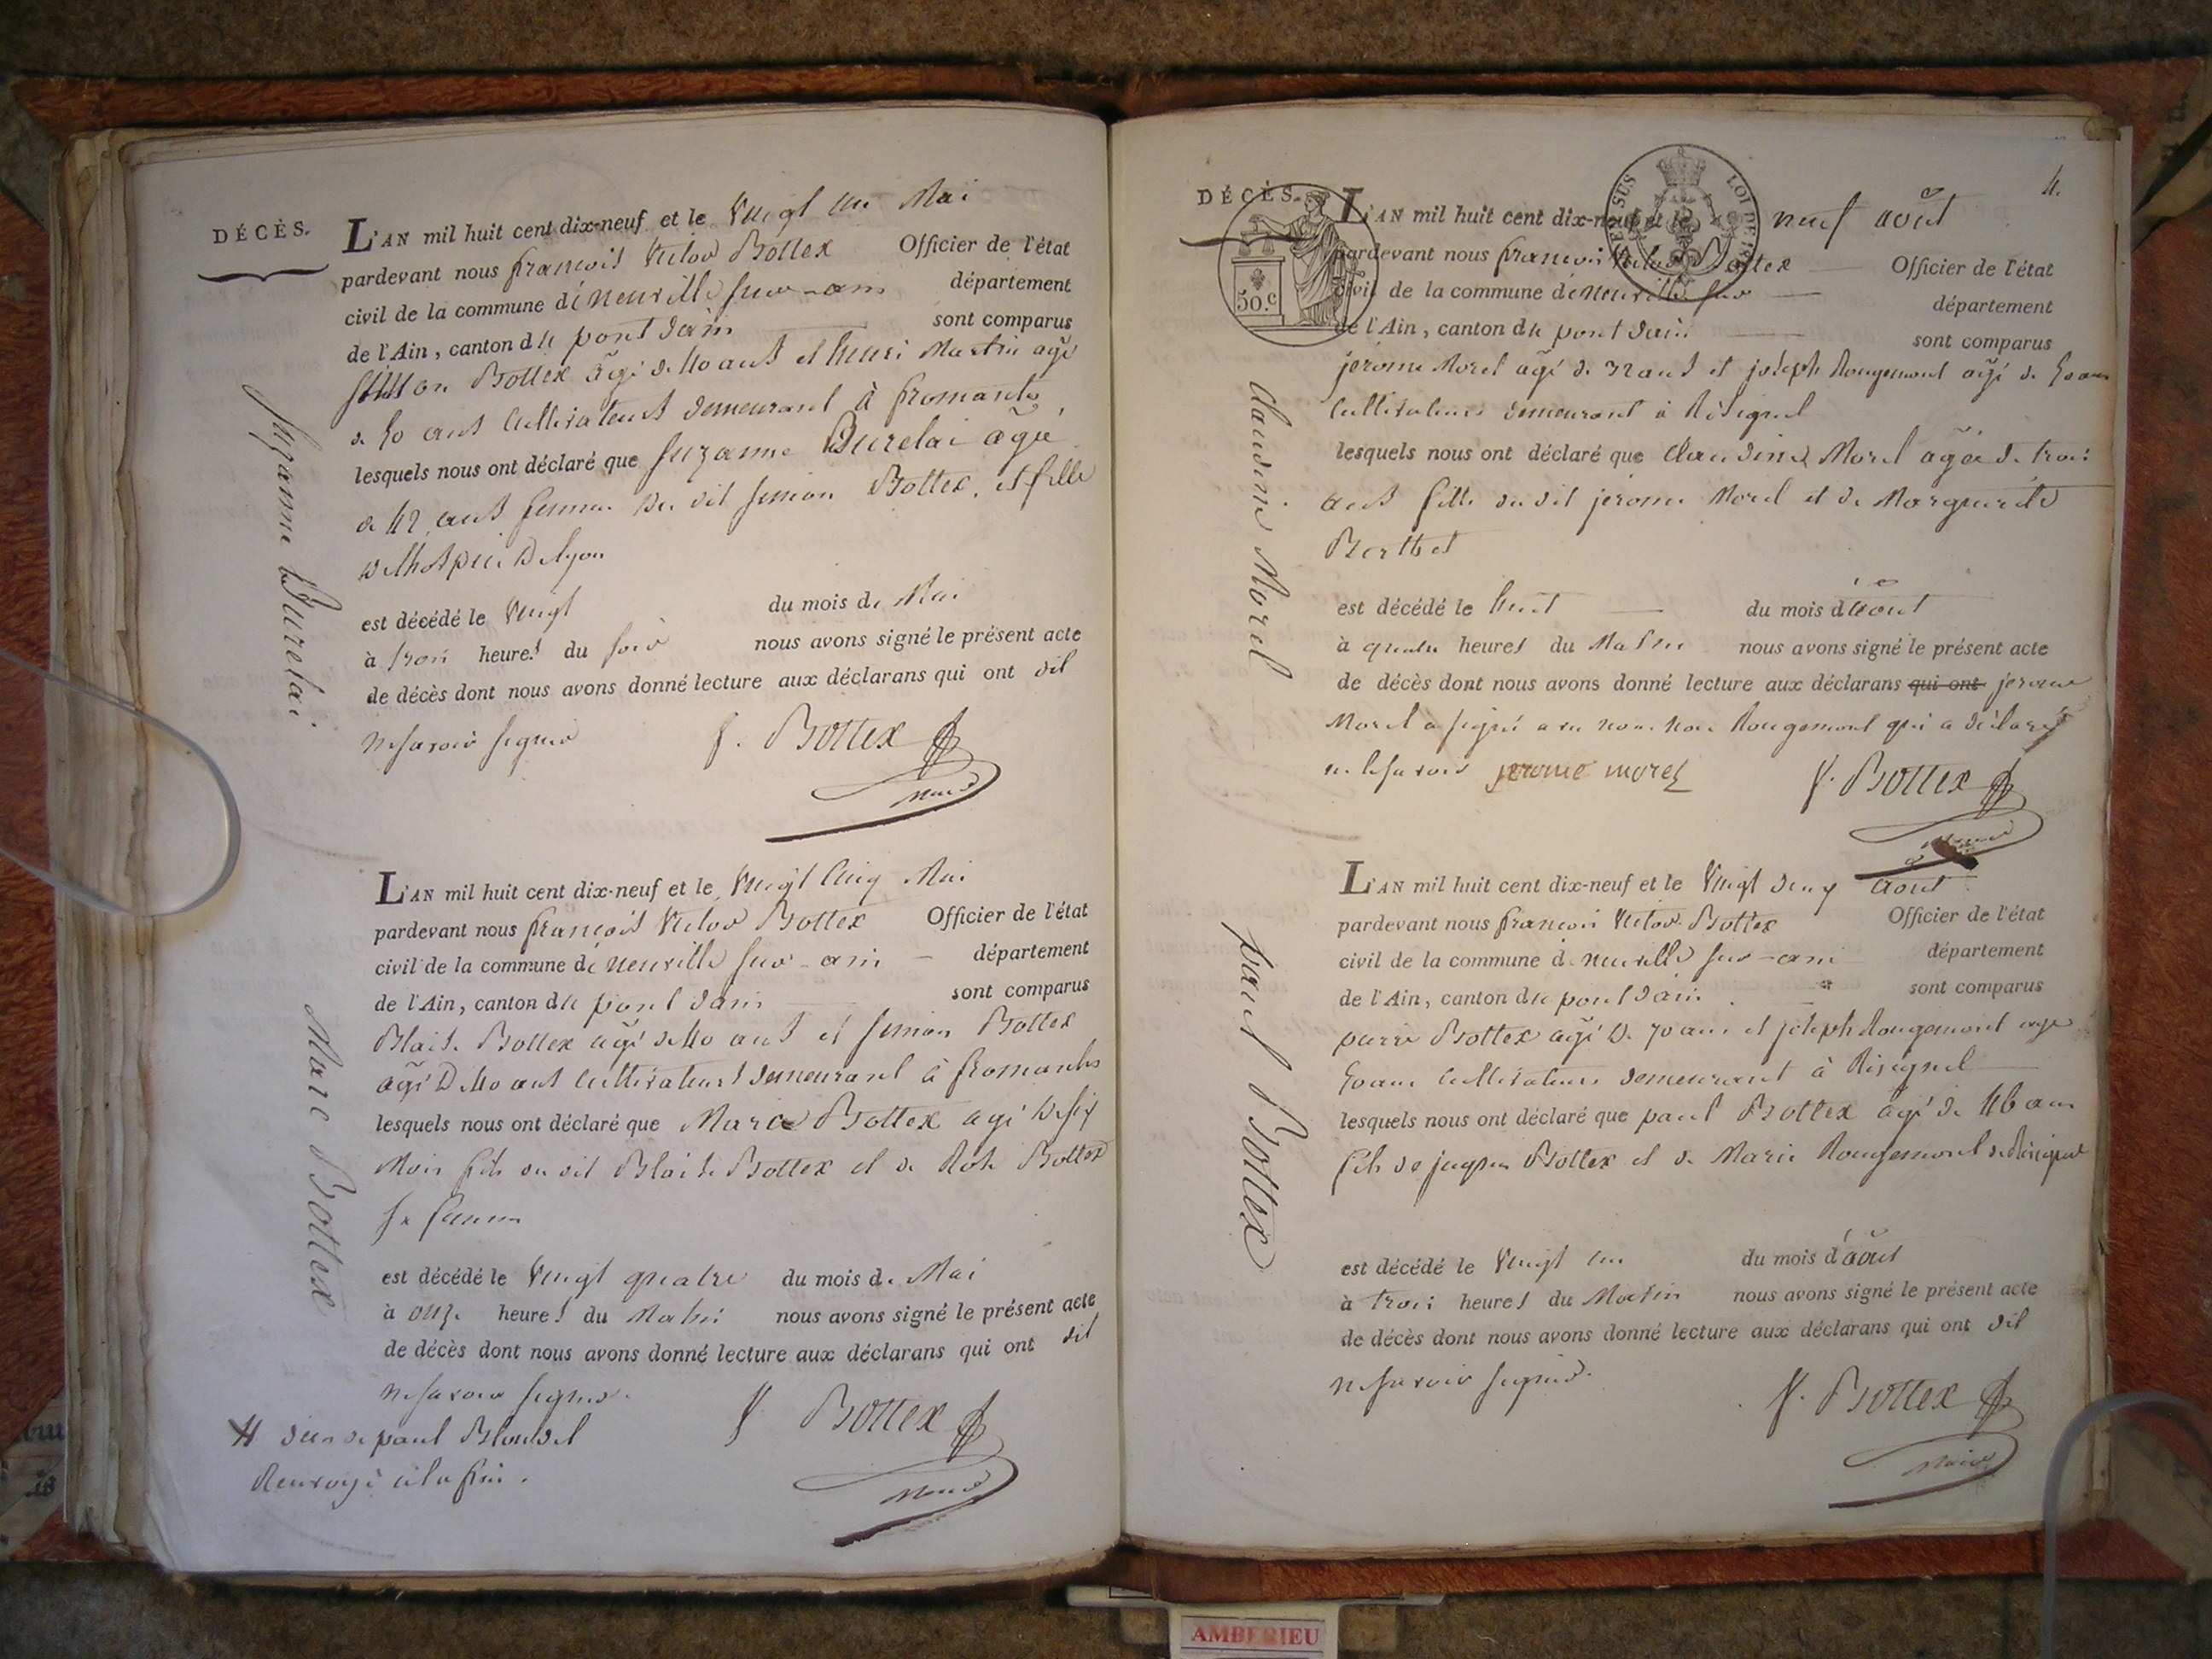 DÉCÈS.
L'AN mil huit cent dix-neuf et le Vingt un Mai
pardevant nous françois Victor Bottex Officier de l'état
civil de la commune de neuville sur-ain département
de l'Ain, canton du pont dain sont comparus
simon Bottex agé de 40 ans et henri Martin agé
de 50 ans Cultivateurs demeurant à fromente
lesquels nous ont déclaré que suzanne Burelai agée
de 42 ans femme du dit simon Bottex, et fille
de lhospice De lyon
est décédé le Vingt du mois de Mai
à trois heures du soir nous avons signé le présent acte
de décès dont nous avons donné lecture aux déclarans qui ont dit
ne savoir signer f. Bottex
Maire
Suzanne Burelai
L'AN mil huit cent dix-neuf et le Vingt Cinq Mai
pardevant nous françois Victor Bottex Officier de l'état
civil de la commune de neuville sur-ain département
de l'Ain, canton du pont dain sont comparus
Blaise Bottex agé de 40 ans et simon Bottex
agé De 40 ans Cultivateurs demeurant à fromentes
lesquels nous ont déclaré que Marc Bottex agé De six
Mois fils du dit Blaise Bottex et de Rose Bottex
sa femme
est décédé le Vingt quatre du mois de Mai
à onze heures du Matin nous avons signé le présent acte
de décès dont nous avons donné lecture aux déclarans qui ont dit
ne savoir signer. f. Bottex
Maire
Marc Bottex
de paul Blondel
Renvoyé à la fin.
DÉCÈS.
4.
50.c
L'AN mil huit cent dix-neuf et le neuf août
pardevant nous francois Victor Bottex Officier de l'état
civil de la commune de neuville sur département
de l'Ain, canton du pont dain sont comparus
jerome Morel agé de 32 ans et joseph Rougemont agé de 50 ans
Cultivateurs demeurant à Résignel
lesquels nous ont déclaré que Claudine Morel agée de trois
ans fille du dit jerome Morel et de Marguerite
Berthet
est décédé le huit du mois d'août
à quatre heures du Matin nous avons signé le présent acte
de décès dont nous avons donné lecture aux déclarans qui ont jerome
Morel a signé avec nous non Rougemont qui a déclaré
ne le savoir jerome morel f. Bottex
Maire
Claudine Morel
L'AN mil huit cent dix-neuf et le Vingt deux août
pardevant nous francois Victor Bottex Officier de l'état
civil de la commune de neuville sur-ain département
de l'Ain, canton du pont dain sont comparus
pierre Bottex agé De 70 ans et joseph Rougemont agé
50 ans Cultivateurs demeurant à Résignel
lesquels nous ont déclaré que paul Bottex agé de 46 ans
fils de jaques Bottex et de Marie Rougemont de Résignel
est décédé le Vingt un du mois d'août
à trois heures du Matin nous avons signé le présent acte
de décès dont nous avons donné lecture aux déclarans qui ont dit
ne savoir signer. f. Bottex
Maire
paul Bottex
AMBERIEU